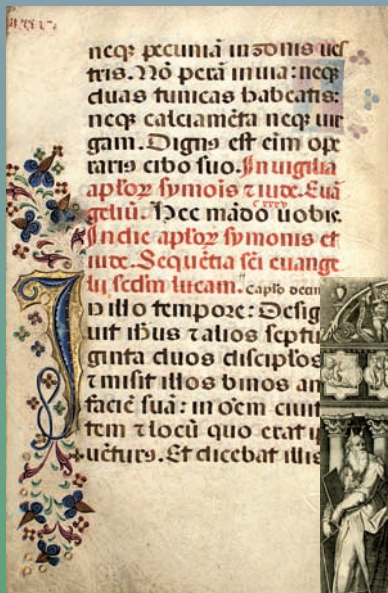 neqȝ pecuniā in ʒonis ueſ
tris. Nō perā in uia: neqȝ
duas tunicas habeatis:
neqȝ calciamēta neqȝ uir
gam. Dignꝰ eſt eīm ope
rariꝰ cibo ſuo. In uigilia
aploꝝ ſymōis ⁊ iude. Euā
geliū. Hec mādo uobis.
In die aploꝝ ſymonis et
iude. Sequētia ſēi euange
lii ſcdm lucam. caplo decim
In illo tempore: Deſig
uit ihūs ⁊ alios ſeptu
ginta duos diſciplos
⁊ miſit illos binos an
faciē ſuā: in oēm ciuit
tem ⁊ locū quo erat
uēturꝰ. Et dicebat illis